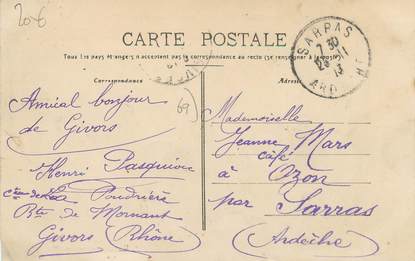 20€
CARTE POSTALE
Tous les pays étrangers n'acceptent pas la correspondance au recto (se renseigner à la poste)
Correspondance
Adresse
SARRAS
7 30
23 - 11
13
ARDECHE
69
Amical bonjour
de Givors
Henri Pasquion
Poudrière
Rte de Mornant
Givors (Rhône)
Mademoiselle
Jeanne Mars
café
à Ozon
par Sarras
(Ardèche)